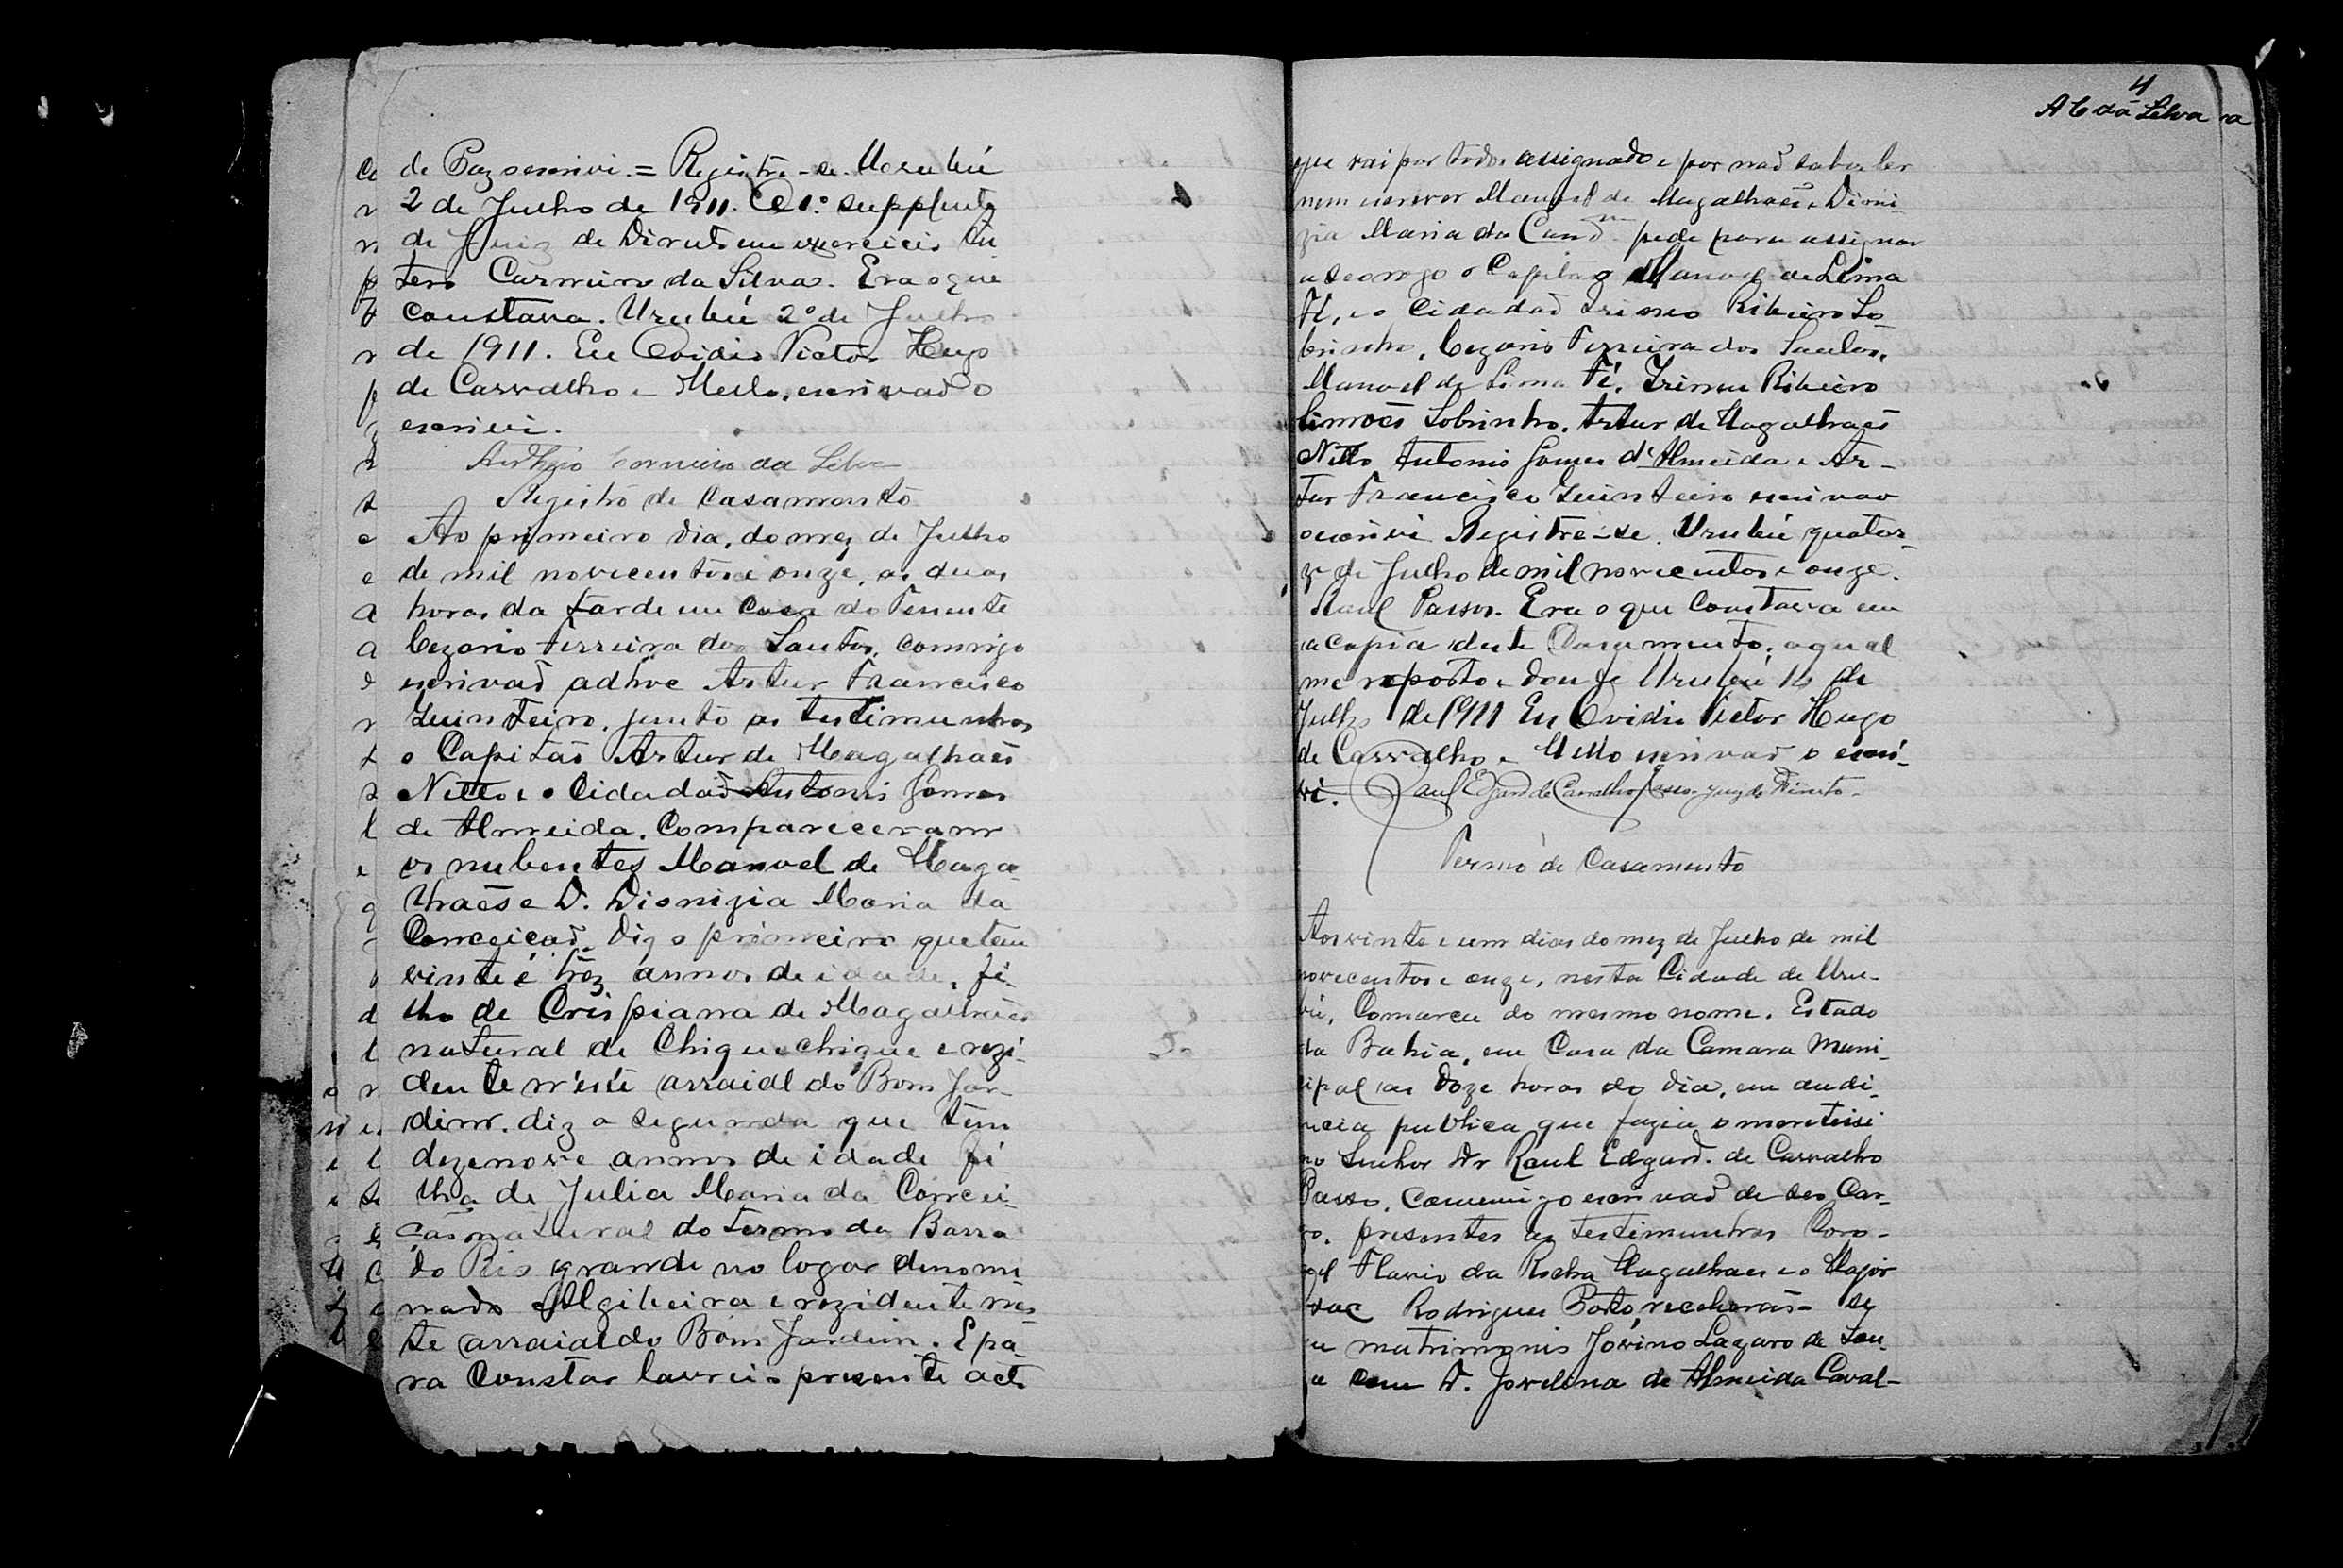 de Paz escrivi. = Registre-se. Urubú
2 de Julho de 1911. O 1º supplente
de Juiz de Direito em exercicio
Carneiro da Silva. Era o que
Constava. Urubú 2º de Julho
de 1911. Eu Ovidio Victor Hugo
de Carvalho e Mello, escrivaõ o
escrivi.
Carneiro da Silva
Registro de Casamento
Ao primeiro dia, do mez de Julho
de mil novecentos e onze, as duas
horas da tarde em Casa do Tenente
Cezario Ferreira dos Santos, commigo
escrivaõ adhoc Artur Francisco
Quinteiro, junto as testimunhas
o Capitaõ Artur de Magalhaẽs
Netto e o Cidadaõ Antonio Gomes
de Almeida. Compareceram
os nubentes Manoel de Maga-
lhaẽs e D. Dionizia Maria da
Conceicaõ. Diz o primeiro que tem
vinte é trez annos de idade, fi-
lho de Crispiana de Magalhaẽs
natural de Chiquechique e rezi-
dente n'este arraial do Bom Jar-
dim. diz a segunda que tem
dezenove annos de idade fi
lha de Julia Maria da Concei-
çaõ natural do termo da Barra
do Rio grande no logar denomi-
nado Algibeira e rezidente nes-
te arraial do Bom Jardim. E pa-
ra Constar lavrei o presente acto
4
A C da Silva
que vai por todos assignado e por naõ saber ler
nem escrever Manoel de Magalhaẽs e Dioni-
zia Maria da Concam. pede para assignar
a seo rogo o Capitaõ Manoel de Lima
Fé, e o Cidadaõ Irineo Ribeiro So-
brinho, Cezario Ferreira dos Santos,
Manoel de Lima Fé, Irineu Ribeiro
Simoẽs Sobrinho. Artur de Magalhaẽs
Netto Antonio Gomes d'Almeida e Ar-
tur Francisco Quinteiro escrivaõ
o escrivi Registre-se. Urubú quator-
ze de Julho de mil novecentos e onze.
Raul Passos. Era o que Constava em
a copia deste Casamento, a qual
me reporto e dou fe Urubú 14 de
Julho de 1911 Eu Ovidio Victor Hugo
de Carvalho e Mello escrivaõ o escri-
vi. Raul Edgard de Carvalho Passo. Juiz de Direito.
Termo de Casamento
Aos vinte e um dias do mez de Julho de mil
novecentos e onze, nesta Cidade de Uru-
bú, Comarca do mesmo nome. Estado
da Bahia, em Casa da Camara Muni-
cipal as doze horas do dia, em audi-
encia publica que fazia o meretissi
mo Senhor Dr Raul Edgard. de Carvalho
Passo, Commigo escrivaõ de seo Car-
go, presentes as testimunhas Coro-
nel Flavio da Rocha Magalhaes e o Major
Isac Rodrigues Porto, receberaõ- se
em matrimonio Jovino Lazaro de Sou-
za com D. Jovelina de Almeida Caval-